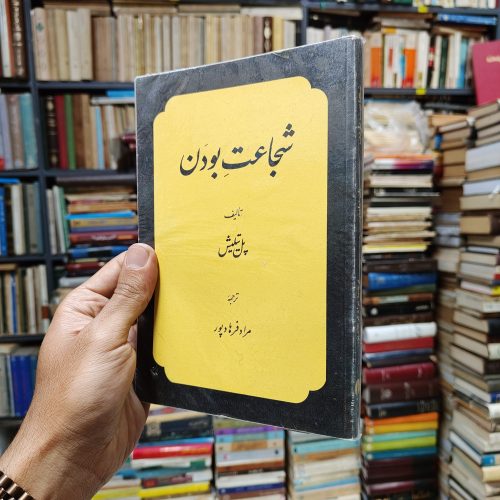 شجاعتِ بودَن
تألیف
پل تیلیش
ترجمهٔ
مراد فرهادپور